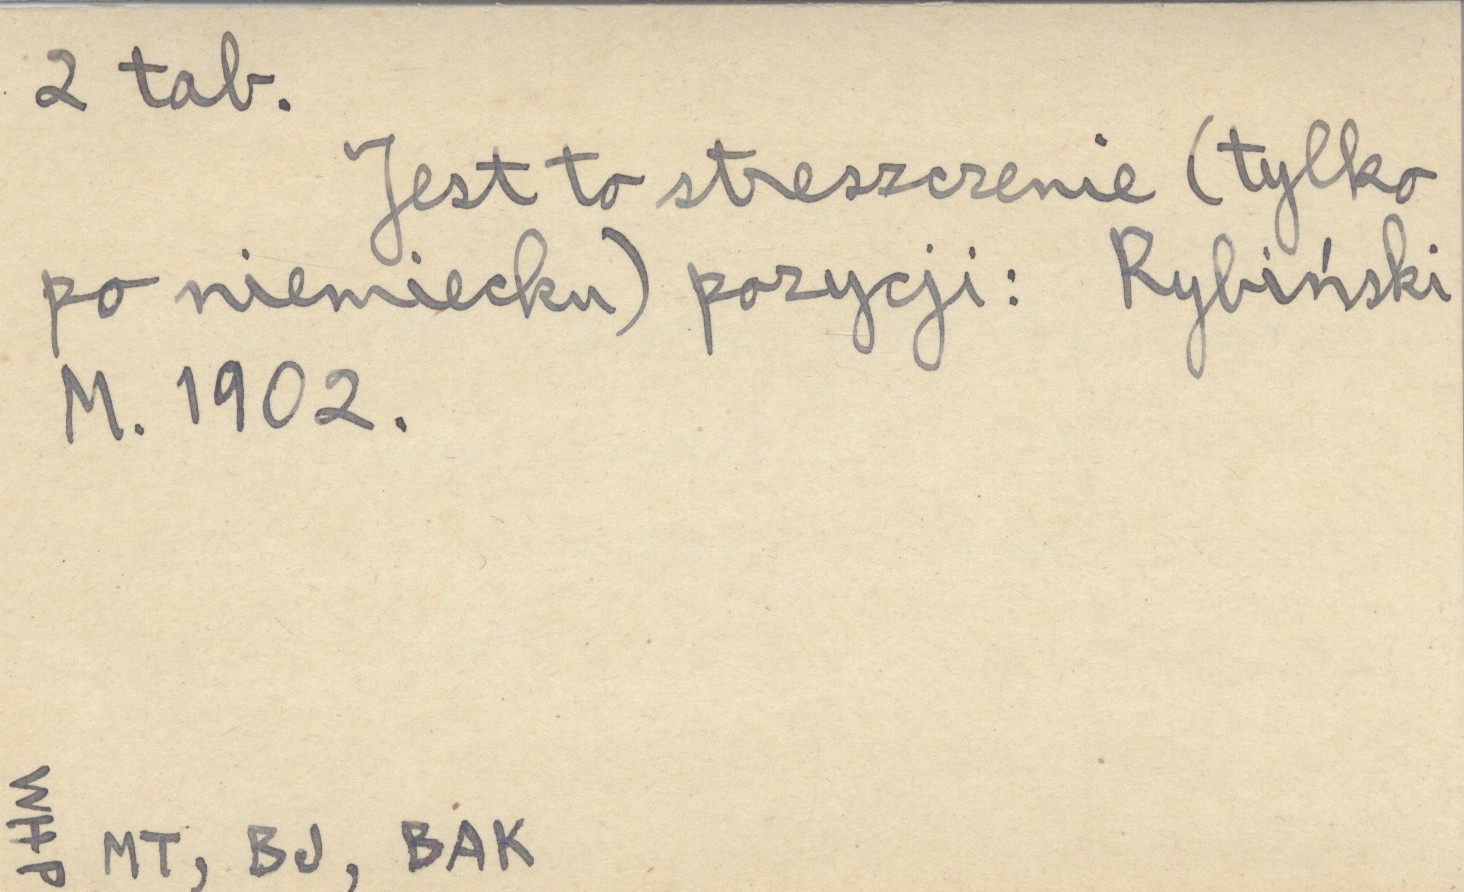 2 tab.
Jest to streszczenie (tylko
po niemiecku) pozycji: Rybiński
M. 1902.
MT, BJ, BAK